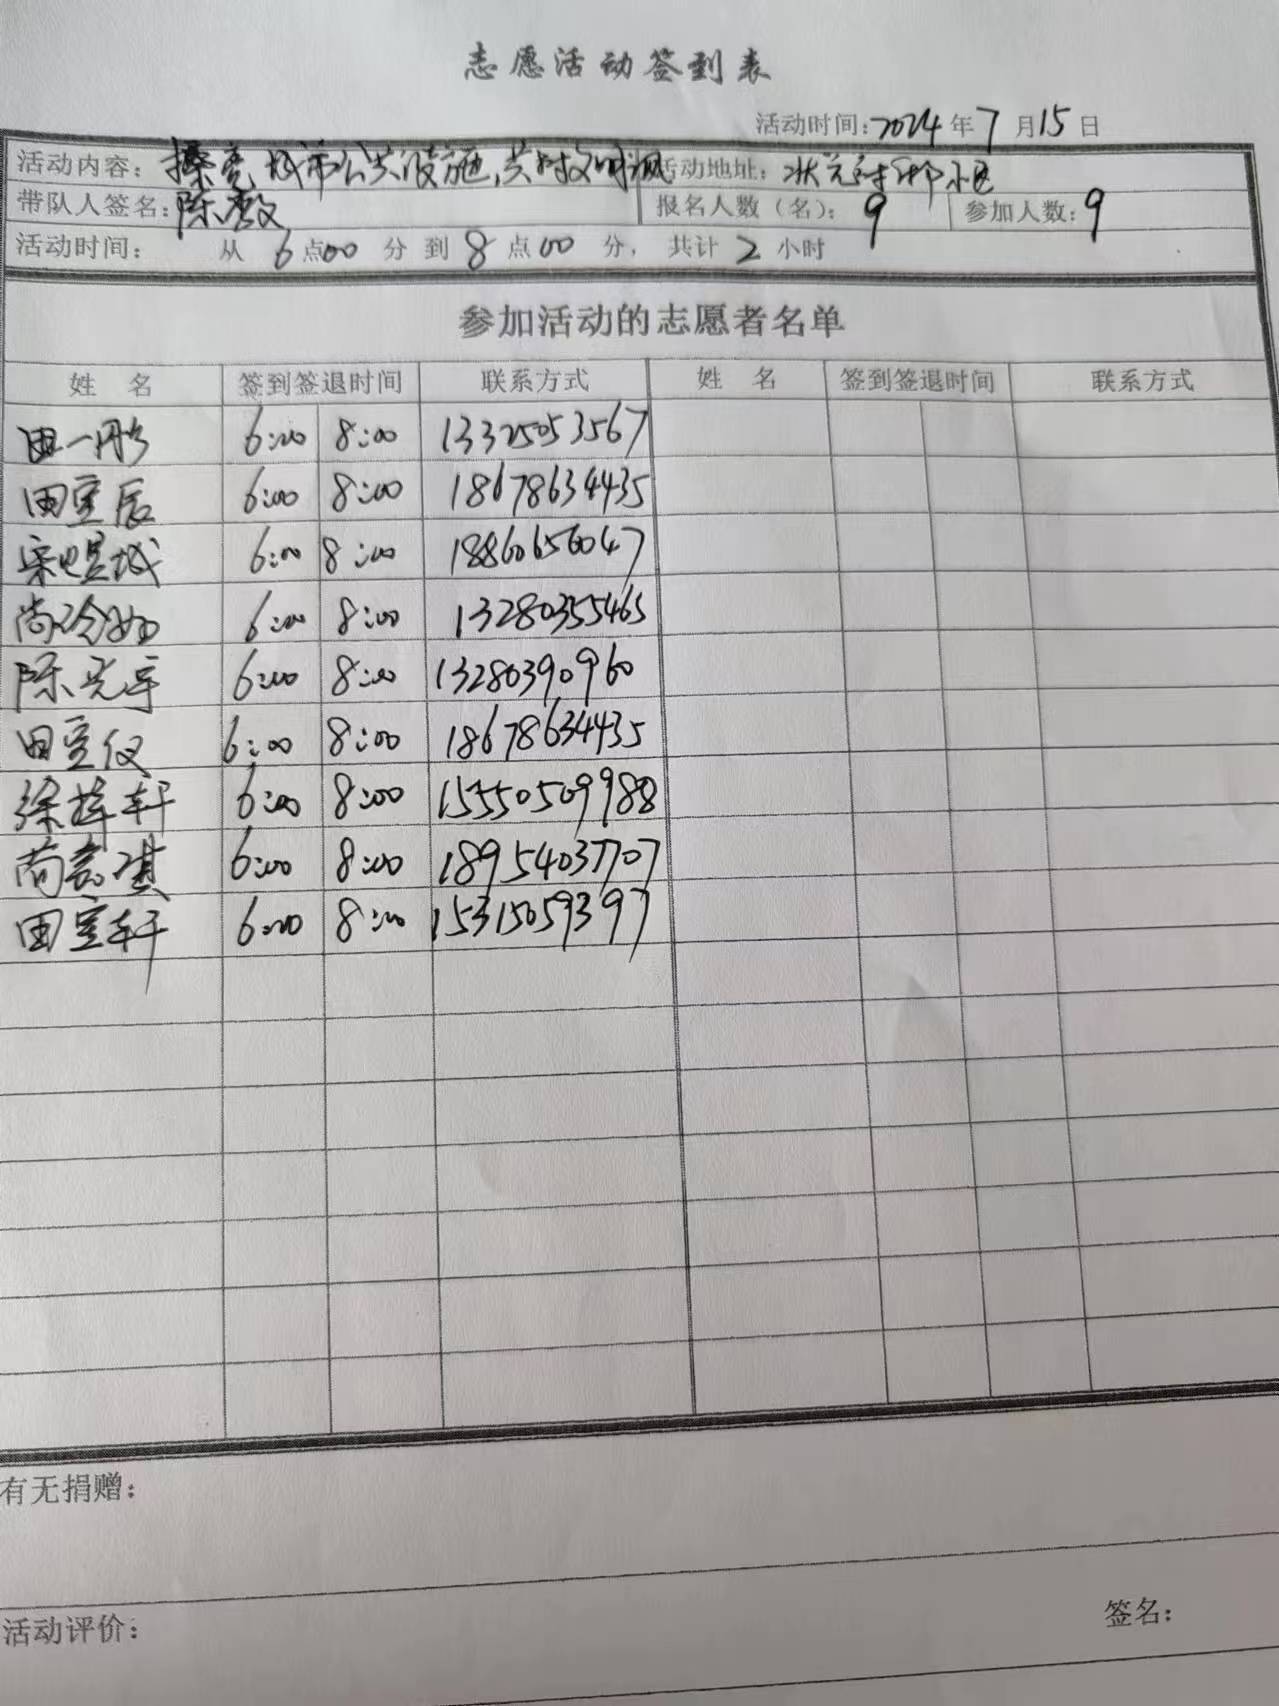 志愿活动签到表
活动时间：2024年7月15日
活动内容：擦亮城市公共设施，共树文明 活动地址：状元 小区
带队人签名：陈 报名人数（名）：9 参加人数：9
活动时间： 从 6 点 00 分 到 8 点 00 分， 共计 2 小时
参加活动的志愿者名单
姓 名 签到签退时间 联系方式 姓 名 签到签退时间 联系方式
田一彤 6:00 8:00 13325053567
田室辰 6:00 8:00 18678634435
宋煜城 6:00 8:00 18860656047
尚泠如 6:00 8:00 13280355465
陈光宇 6:00 8:00 13280390960
田室仪 6:00 8:00 18678634435
徐梓轩 6:00 8:00 15550509988
尚嘉琪 6:00 8:00 18954037707
田室轩 6:00 8:00 15315059397
有无捐赠：
活动评价：
签名：